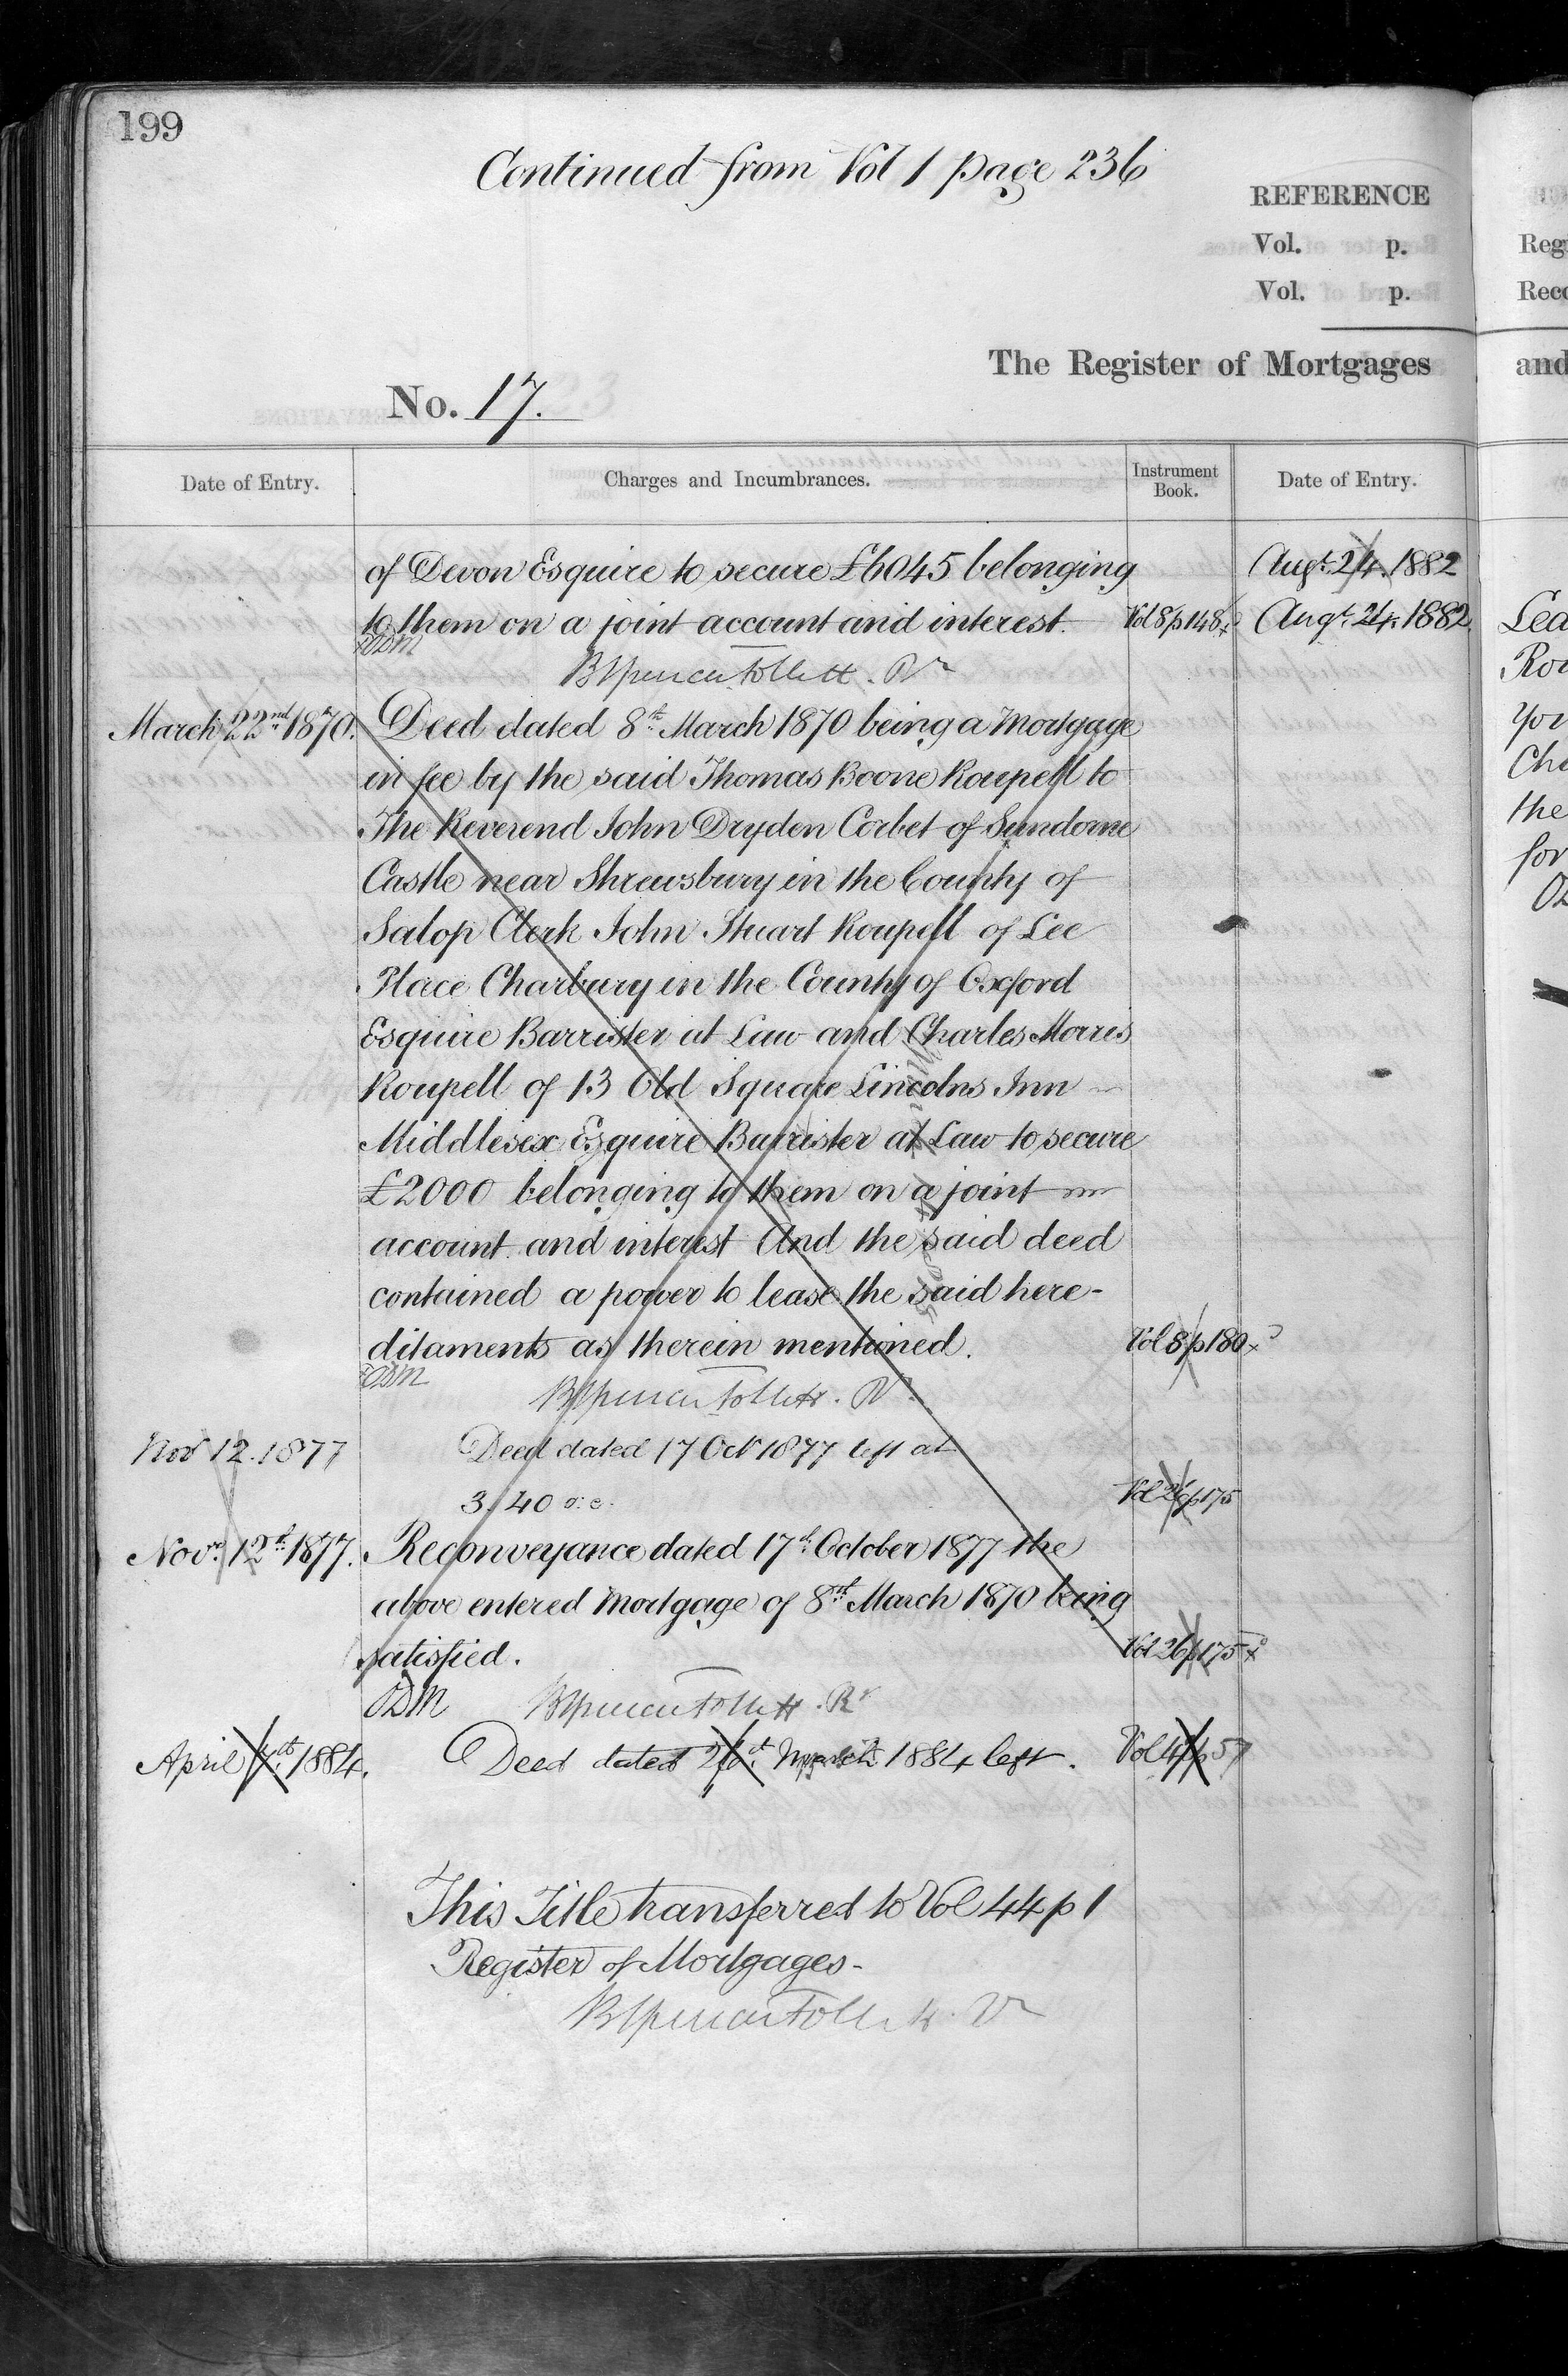 199
Continued from Vol 1 page 236
REFERENCE
Vol. p.
Vol. p.
The Register of Mortgages
No. 17.
Date of Entry. Charges and Incumbrances. Instrument Book. Date of Entry.
of Devon Esquire to secure £6045 belonging Augt. 24. 1882
to them on a joint account and interest. Vol 8 p 148 Augt. 24. 1882
BSpencerFollett. Rr
March 22nd 1870. Deed dated 8th March 1870 being a Mortgage
in fee by the said Thomas Boone Roupell to
The Reverend John Dryden Corbet of Sundorne
Castle near Shrewsbury in the County of
Salop Clerk John Stuart Roupell of Lee
Place Charbury in the County of Oxford
Esquire Barrister at Law and Charles Morris
Roupell of 13 Old Square Lincolns Inn
Middlesex Esquire Barrister at Law to secure
£2000 belonging to them on a joint
account and interest And the said deed
contained a power to lease the said here-
ditaments as therein mentioned. Vol 8 p 180
BSpencerFollett. Rr
Nov 12. 1877 Deed dated 17 Oct 1877 left at
3.40 o.c. Vol 26 p 175
Novr. 12th 1877. Reconveyance dated 17th October 1877 the
above entered Mortgage of 8th March 1870 being
satisfied. Vol 26 p 175
ODM BSpencerFollett. Rr
April 7th 1884. Deed dated 26th March 1884 left. Vol 44 p 57
This Title transferred to Vol 44 p 1
Register of Mortgages-
BSpencerFollett. Rr
Reg
Reco
and
Lea
Rou
You
Cha
the
for